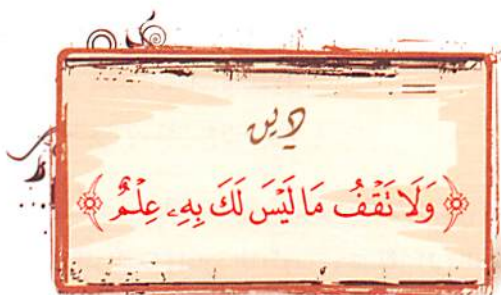 دين
﴿وَلَا تَقْفُ مَا لَيْسَ لَكَ بِهِۦ عِلْمٌ﴾